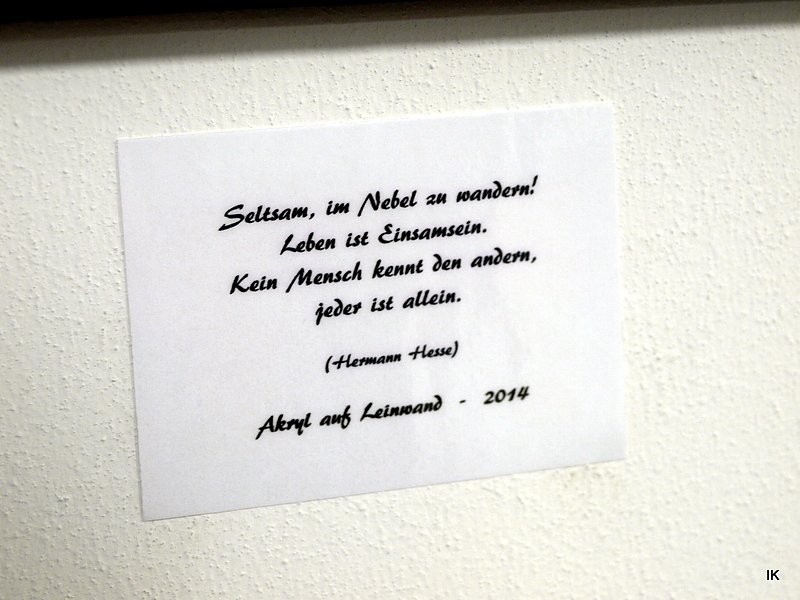 Seltsam, im Nebel zu wandern!
Leben ist Einsamsein.
Kein Mensch kennt den andern,
jeder ist allein.
(Hermann Hesse)
Akryl auf Leinwand - 2014
IK